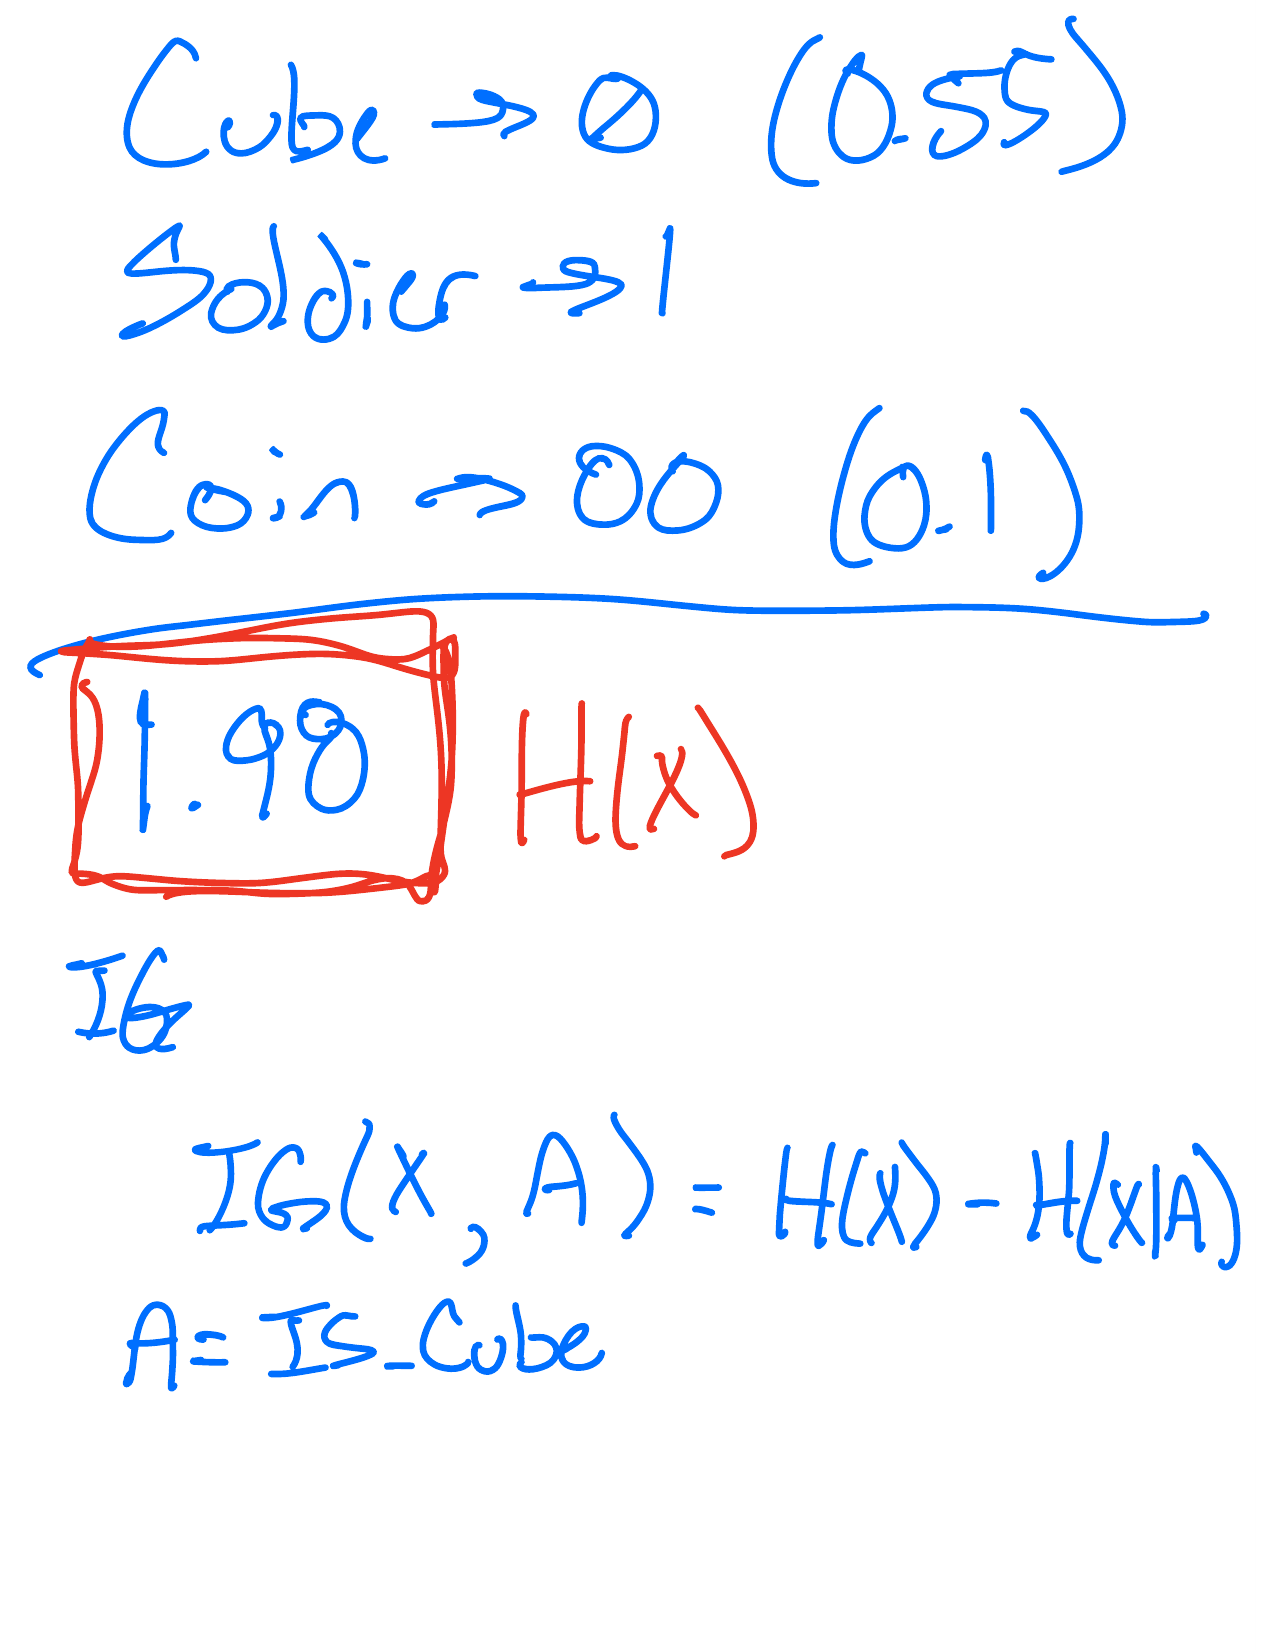 Cube → 0 (0.55)
Soldier → 1
Coin → 00 (0.1)
1.98 H(X)
IG
IG(X, A) = H(X) - H(X|A)
A = IS_Cube